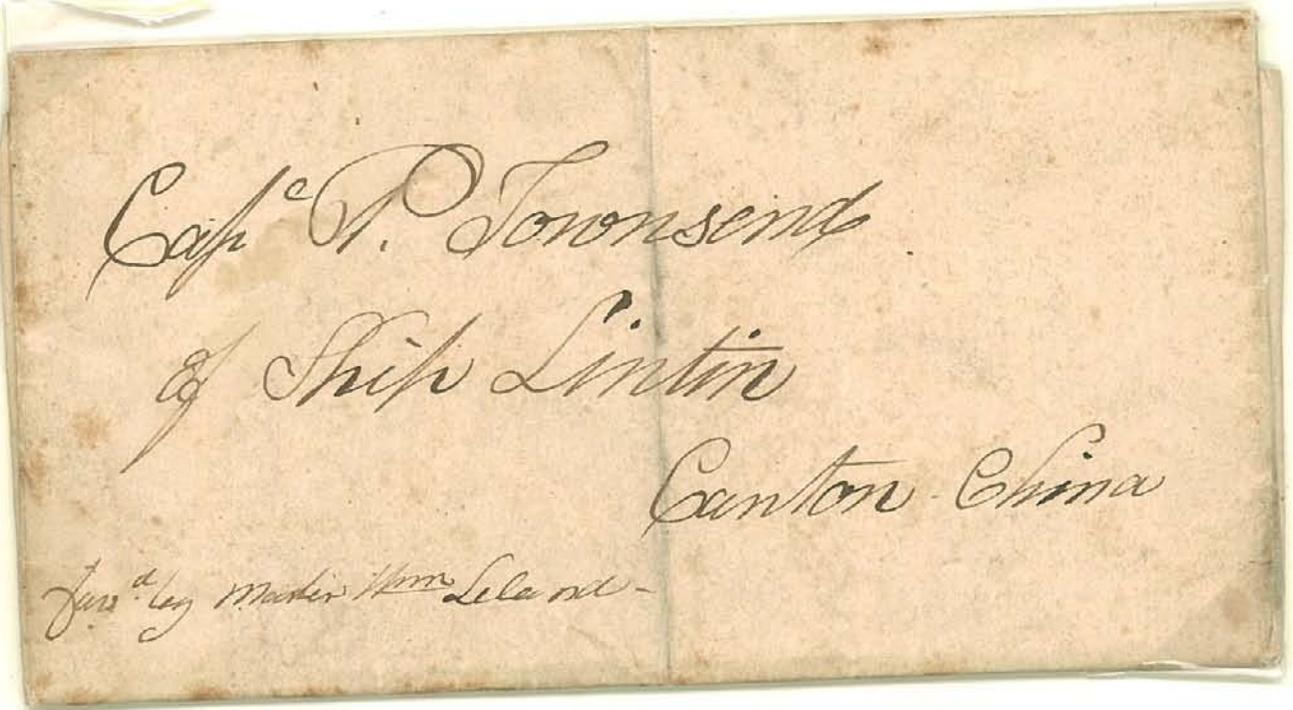 Capt P. Townsend
of Ship Lintin
Canton China
favd by Master Wm Leland -